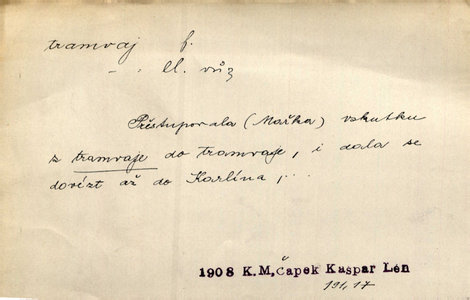 tramvaj f.
- . el. vůz
Přistupovala (Mařka) vskutku
z tramvaje do tramvaje, i dala se
dovézt až do Karlína, . .
1908 K.M,Čapek Kaspar Len
191,17